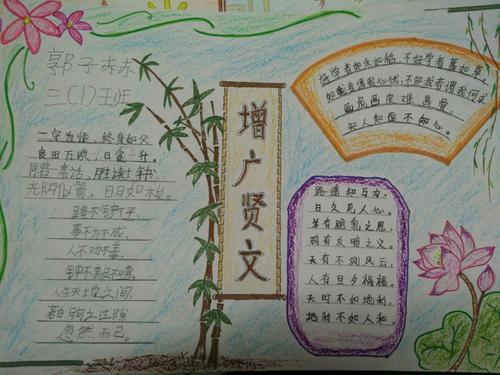 郭子赫
三(1)班
一字为师，终身如父
良田万顷，日食一升。
同君一席话，胜读十年书
光阴似箭，日月如梭。
路不铲不平
事不为不成
人不劝不善
钟不敲不鸣
人生天地之间，
若白驹之过隙
忽然而已。
增广贤文
好学者如禾如稻，不好学者蒿如草。
知我者谓我心忧，不知我者谓我何求
画虎画皮难画骨，
知人知面不知心。
路遥知马力，
日久见人心。
羊有跪乳之恩，
鸦有反哺之义。
天有不测风云，
人有旦夕祸福。
天时不如地利，
地利不如人和。